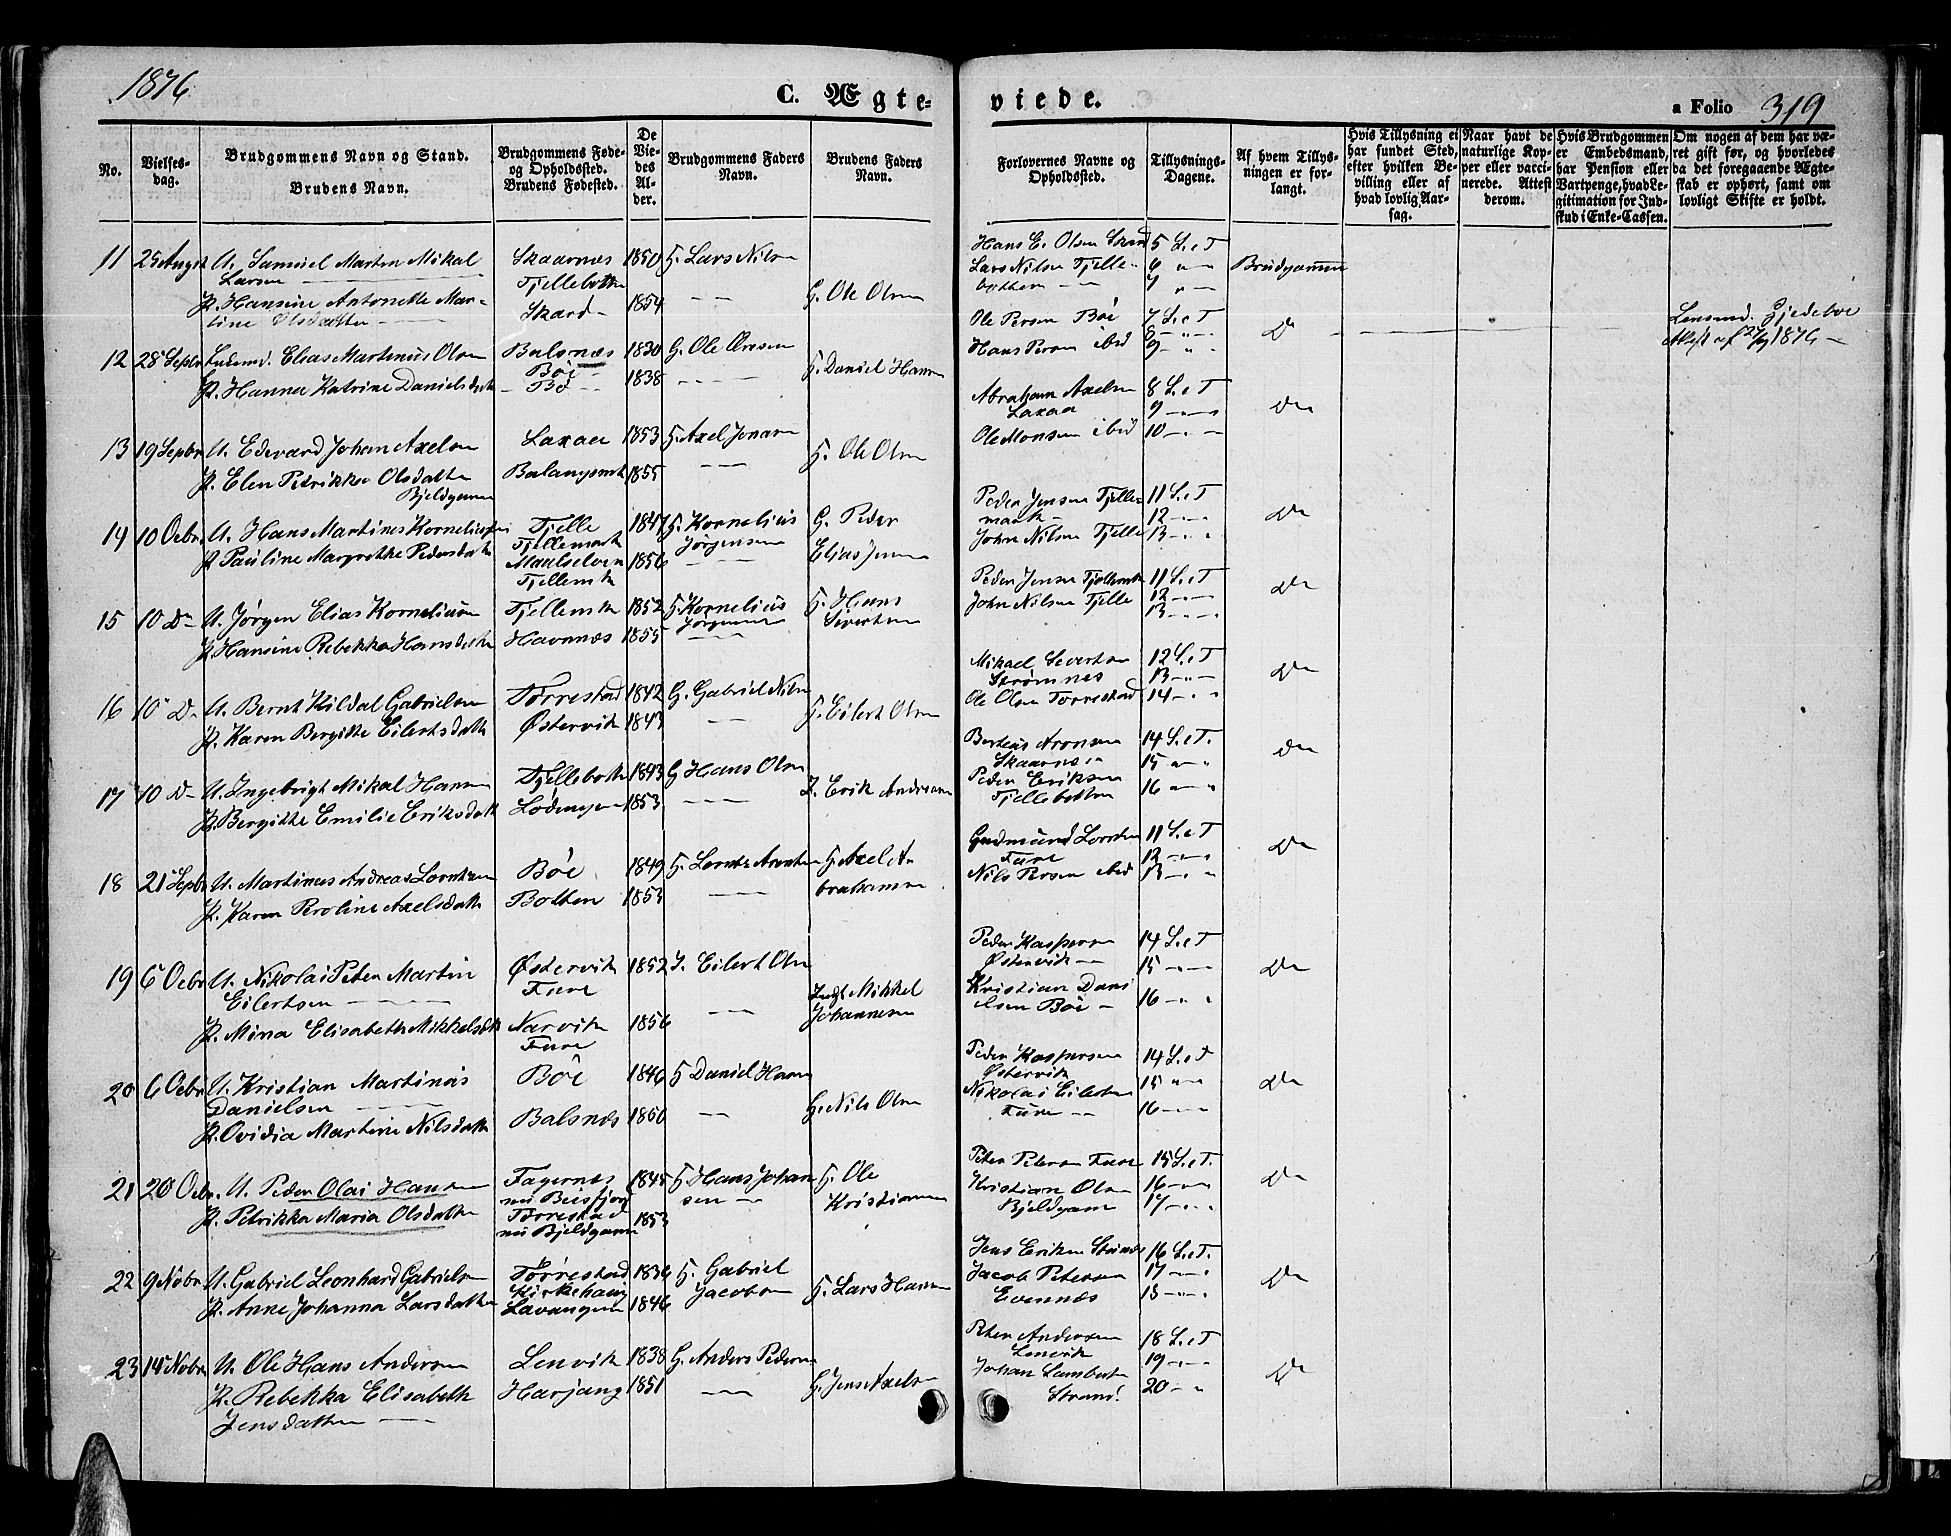 1876
C. Ægte=
viede.
a Folio 319
No.
Vielses-
dag.
Brudgommens Navn og Stand.
Brudens Navn.
Brudgommens Føde-
og Opholdssted.
Brudens Fødested.
De
Vie-
des
Al-
der.
Brudgommens Faders
Navn.
Brudens Faders
Navn.
Forlovernes Navne og
Opholdssted.
Tillysnings-
Dagene.
Af hvem Tillys-
ningen er for-
langt.
Hvis Tillysning ei
har fundet Sted,
efter hvilken Be-
villing eller af
hvad lovlig Aar-
sag.
Naar havt de
naturlige Kop-
per eller vacci-
nerede. Attest
derom.
Hvis Brudgommen
er Embedsmand,
har Pension eller
Vartpenge, hvad Le-
gitimation for Ind-
skud i Enke-Cassen.
Om nogen af dem har væ-
ret gift før, og hvorledes
da det foregaaende Ægte-
skab er ophørt, samt om
lovligt Skifte er holdt.
11 25 August U. Samuel Martin Mikal
Larsen
P. Hansine Antonette Mar-
tine Olsdatter
Skaarnæs
Tjellebotten
Skard
1850
1854
G. Lars Nilsen
G. Ole Olsen
Hans E. Olsen
Lars Nilsen Tjelle-
botten
5 S. e T
6 " "
7 "
Brudgommen
12 28 Septbr Elias Martinus Olsen
P. Hanna Katrine Danielsdatter
Balsnæs
Bøe
Bø
1830
1838
G. Ole
G. Daniel Hansen
Ole Persen Bøe
Hans Persen ibid
7 S. e T
8 "
9 "
Do
Lensmd. Gjedeboe
Attest af 27/9 1876
13 19 Septbr U. Edevard Johan Axelsen
P. Elen Petrikka Olsdatter
Bjeldgamm
Laxaa
1853
1855
G. Axel Jonsen
G. Ole Olsen
Abraham Axelsen
Laxaa
Ole Monsen ibid
8 S. e T
9 " "
10 "
Do
14 10 Octbr U. Hans Martines Korneliussen
P. Pauline Margrethe Pedersdatter
Tjelle
Tjellemark
Maalselven
Tjellemk
1847
1856
G. Kornelius
Jørgensen
G. Peder
Elias Jensen
Peder Jensen Tjelle-
mark
John Nilsen Tjelle
11 S. e T
12 "
13 "
Do
15 10 Do U. Jørgen Elias Korneliusen
P. Hansine Rebekka Hansdatter
Tjellemk
Havnnæs
1852
1855
G. Kornelius
Jørgensen
G. Hans
Sivertsen
Peder Jensen Tjellemk
John Nilsen Tjelle
11 S. e T
12 "
13 "
Do
16 10 Do U. Bernt Kildal Gabrielsen
P. Karen Bergitte Eilertsdatter
Tørrestad
Østervik
1842
1843
G. Gabriel Nilsen
G. Eilert Olsen
Mikael Severtsen
Strømnes
Ole Olsen Torrestad
12 S. e T
13 "
14 "
Do
17 10 Do U. Ingebrigt Mikal Hansen
P. Bergitte Emilie Eriksdatter
Tjellebotten
Lødingen
1843
1853
G. Hans Olsen
I. Erik Andersen
Berteus Aronsen
Skaarnes
Peder Eriksen
Tjellebotten
14 S. e T.
15 " "
16 " "
Do
18 21 Septbr U. Martinus Andreas Lorntsen
P. Karen Peroline Axelsdatter
Bøe
Botten
1849
1853
G. Lornts Arentsen
G. Axel A-
brahamsen
Gudmund Lorntsen
Fure
Nils Persen ibid
11 S. e T
12 "
13 "
Do
19 6 Octbr U. Nikolai Peter Martin
Eilertsen
P. Mina Elisabeth Mikkelsdatter
Østervik
Fure
Narvik
Fure
1852
1856
I. Eilert Olsen
Indst Mikkel
Johannesen
Peder Kaspersen
Østervik
Kristian Dani
elsen Bøe
14 S. e T
15 "
16 "
Do
20 6 Octbr U. Kristian Martinus
Danielsen
P. Ovidia Martine Nilsdatter
Bøe
Balsnæs
1846
1850
G. Daniel Hansen
G. Nils Olsen
Peder Kaspersen
Østervik
Nikolai Eilertsen
Fure
14 S. e T
15 "
16 "
Do
21 20 Octbr U. Peder Olai Hansen
P. Petrikka Maria Olsdatter
Fagernæs
nu Beisfjord
Tørrestad
nu Bjeldgamm
1845
1853
G. Hans Johan
sen
G. Ole
Kristiansen
Peter Petersen Fure
Kristian Olsen
Bjeldgam
15 S. e T.
16 "
17 "
Do
22 9 Novbr U. Gabriel Leonhard Gabrielsen
P. Anne Johanna Larsdatter
Tørrestad
Kirkehaug
Lavangen
1836
1846
G. Gabriel
Jacobsen
G. Lars Hansen
Jens Eriksen
Jacob Petersen
Evennæs
16 S. e T.
17 "
18 "
Do
23 14 Novbr U. Ole Hans Andersen
P. Rebekka Elisabeth
Jensdatter
Lenvik
Harjang
1838
1851
G. Anders Pedersen
G. Jens Axelsen
Peter Andersen
Lenvik
Johan Lambert
Strand
18 S. e T
19 "
20 "
Do